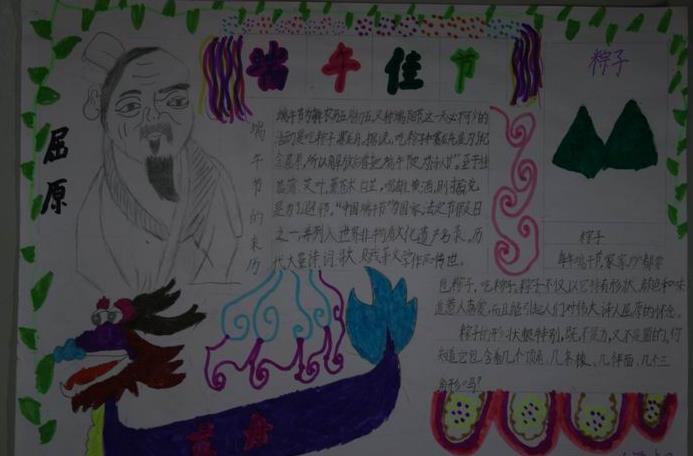 端午佳节
屈原
端午节的来历
端午节为每年农历五月初五,又称端阳节
活动是吃粽子赛龙舟,据说,吃粽子和赛龙舟是为纪
念屈原,所以解放后曾把端午节定为"诗人节"。至于挂
菖蒲、艾叶,薰苍术、白芷,喝雄黄酒,则据说
是为了避邪。"中国端午节"为国家法定节假日
之一,并列入世界非物质文化遗产名录。历
代大量诗、词、歌、赋等文学作品传世。
粽子
粽子
每年端午节,家家户户都要
包粽子,吃粽子,粽子不仅以它特有形状、颜色和味
道惹人喜爱,而且能引起人们对伟大诗人屈原的怀念。
粽子的形状很特别,既不是方,又不是圆的,你
知道它包含着几个顶角、几条棱、几个面、几个三
角形吗?
龙舟